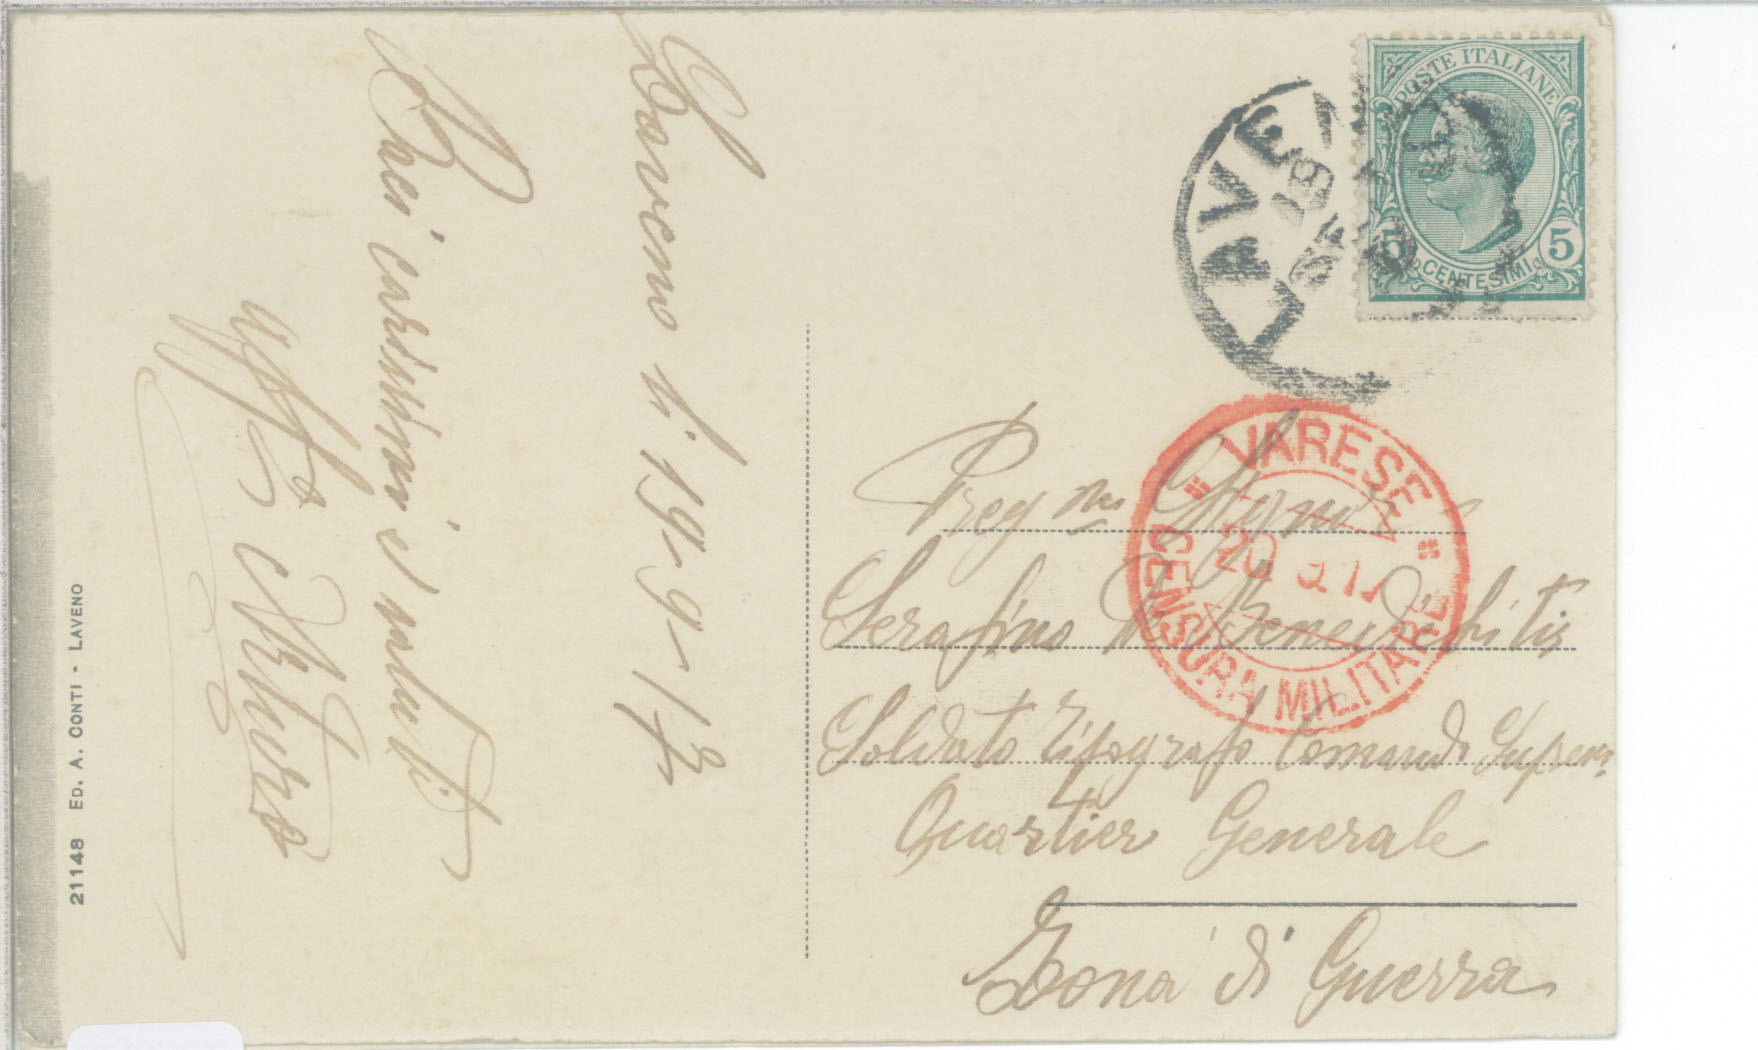 Laveno li 19-9-17
Baci carissimi e saluti
aff. Arturo
21148 ED. A. CONTI - LAVENO
POSTE ITALIANE
5 5
CENTESIMI
LAVE
19
VARESE
20 9 17
CENSURA MILITARE
Preg mo Signor
Serafino De Benedictis
Soldato Tipografo Comando Suprem
Quartier Generale
Zona di Guerra